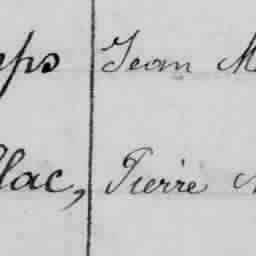 ps Jean M
lac, Pierre